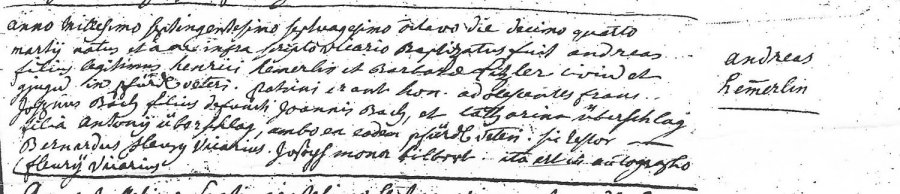 anno millesimo septingentesimo septuagesimo octavo die decimo quarto
martij natus et a me infra scripto vicario Baptizatus fuit andreas
filius legitimus henrici hemerlin et Barbara civiu et
in pfürdt veteri. patrini erant hon. adolescentes frans
Joannus Bach filius defuncti Joannis Bach, et Catharina überschlag
filia Antonij überschlag, ambo ex eadem pfürdt veteri
Bernardus fleury vicarius. Joseph mona ita est in autographo
fleurÿ vicarius
andreas
hemerlin